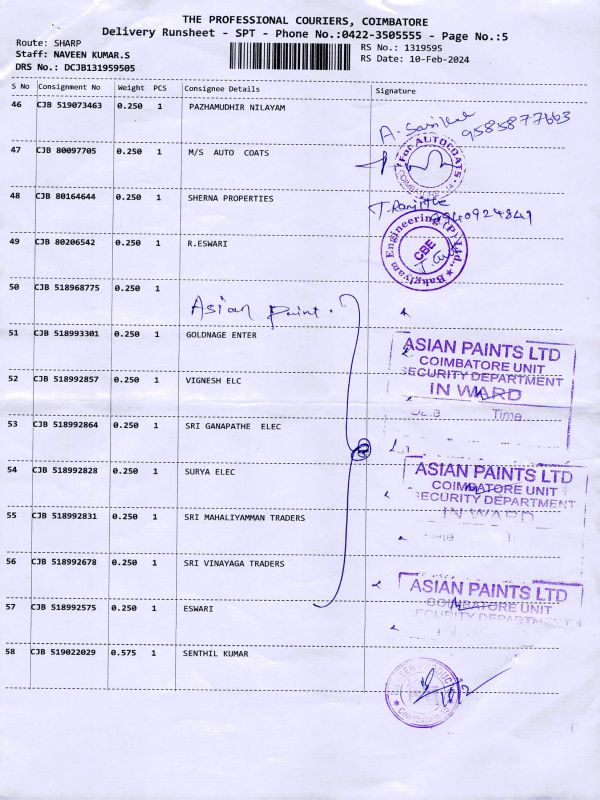 THE PROFESSIONAL COURIERS, COIMBATORE
Delivery Runsheet - SPT - Phone No.:0422-3505555 - Page No.:5
Route: SHARP
Staff: NAVEEN KUMAR.S
DRS No.: DCJB131959505
RS No.: 1319595
RS Date: 10-Feb-2024
S No Consignment No Weight PCS Consignee Details Signature
46 CJB 519073463 0.250 1 PAZHAMUDHIR NILAYAM
9585877663
47 CJB 80097705 0.250 1 M/S AUTO COATS
For AUTOCOATS
48 CJB 80164644 0.250 1 SHERNA PROPERTIES
49 CJB 80206542 0.250 1 R.ESWARI
Bakgiyam Engineering (P) Ltd.,
CBE
50 CJB 518968775 0.250 1 Asian Paint.
51 CJB 518993301 0.250 1 GOLDNAGE ENTER
ASIAN PAINTS LTD
COIMBATORE UNIT
SECURITY DEPARTMENT
IN WARD
Date Time
52 CJB 518992857 0.250 1 VIGNESH ELC
53 CJB 518992864 0.250 1 SRI GANAPATHE ELEC
54 CJB 518992828 0.250 1 SURYA ELEC
ASIAN PAINTS LTD
COIMBATORE UNIT
SECURITY DEPARTMENT
IN WARD
55 CJB 518992831 0.250 1 SRI MAHALIYAMMAN TRADERS
56 CJB 518992678 0.250 1 SRI VINAYAGA TRADERS
ASIAN PAINTS LTD
COIMBATORE UNIT
SECURITY DEPARTMENT
57 CJB 518992575 0.250 1 ESWARI
58 CJB 519022029 0.575 1 SENTHIL KUMAR
10/2